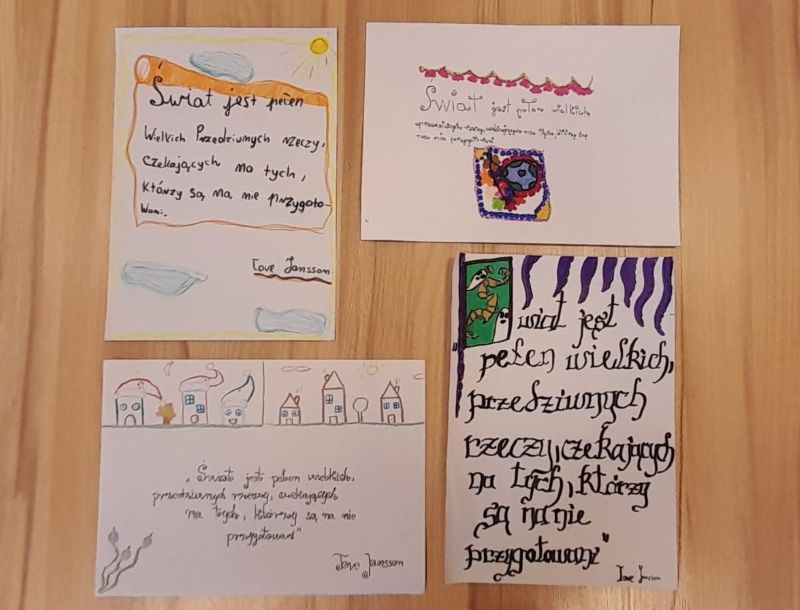 Świat jest pełen
Wielkich Przedziwnych rzeczy,
Czekających na tych,
którzy są na nie przygoto-
wani.
Tove Jansson
Świat jest pełen wielkich
przedziwnych rzeczy, czekających na tych, którzy są
na nie przygotowani
„Świat jest pełen wielkich,
przedziwnych rzeczy, czekających
na tych, którzy są na nie
przygotowani"
Tove Jansson
"wiat jest
pełen wielkich,
przedziwnych
rzeczy, czekających
na tych, którzy
są na nie
przygotowani"
Tove Jansson